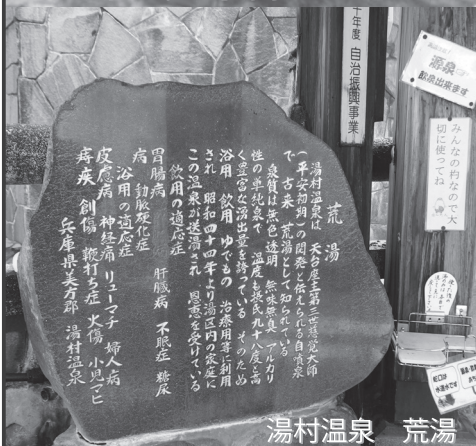 荒湯
湯村温泉は 天台座主第三世慈覚大師
(平安初期)の開発と伝えられる自噴泉
で 古来 荒湯として知られている
泉質は無色透明 無味無臭 アルカリ
性の単純泉で 温度も摂氏九十八度と高
く豊富な湧出量を誇っている そのため
浴用 飲用 ゆでもの 治療用等に利用
され 昭和四十四年より湯区内の家庭に
この温泉が送湯され 恩恵を受けている
飲用の適応症
胃腸病 肝臓病 不眠症 糖尿
病 動脈硬化症
浴用の適応症
皮膚病 神経痛 リューマチ 婦人病
痔疾 創傷 鞭打ち症 火傷 小児マヒ
兵庫県美方郡 湯村温泉
年度 自治振興事業
源泉
飲泉出来ます
みんなの杓なので大
切に使ってね
湯村温泉 荒湯